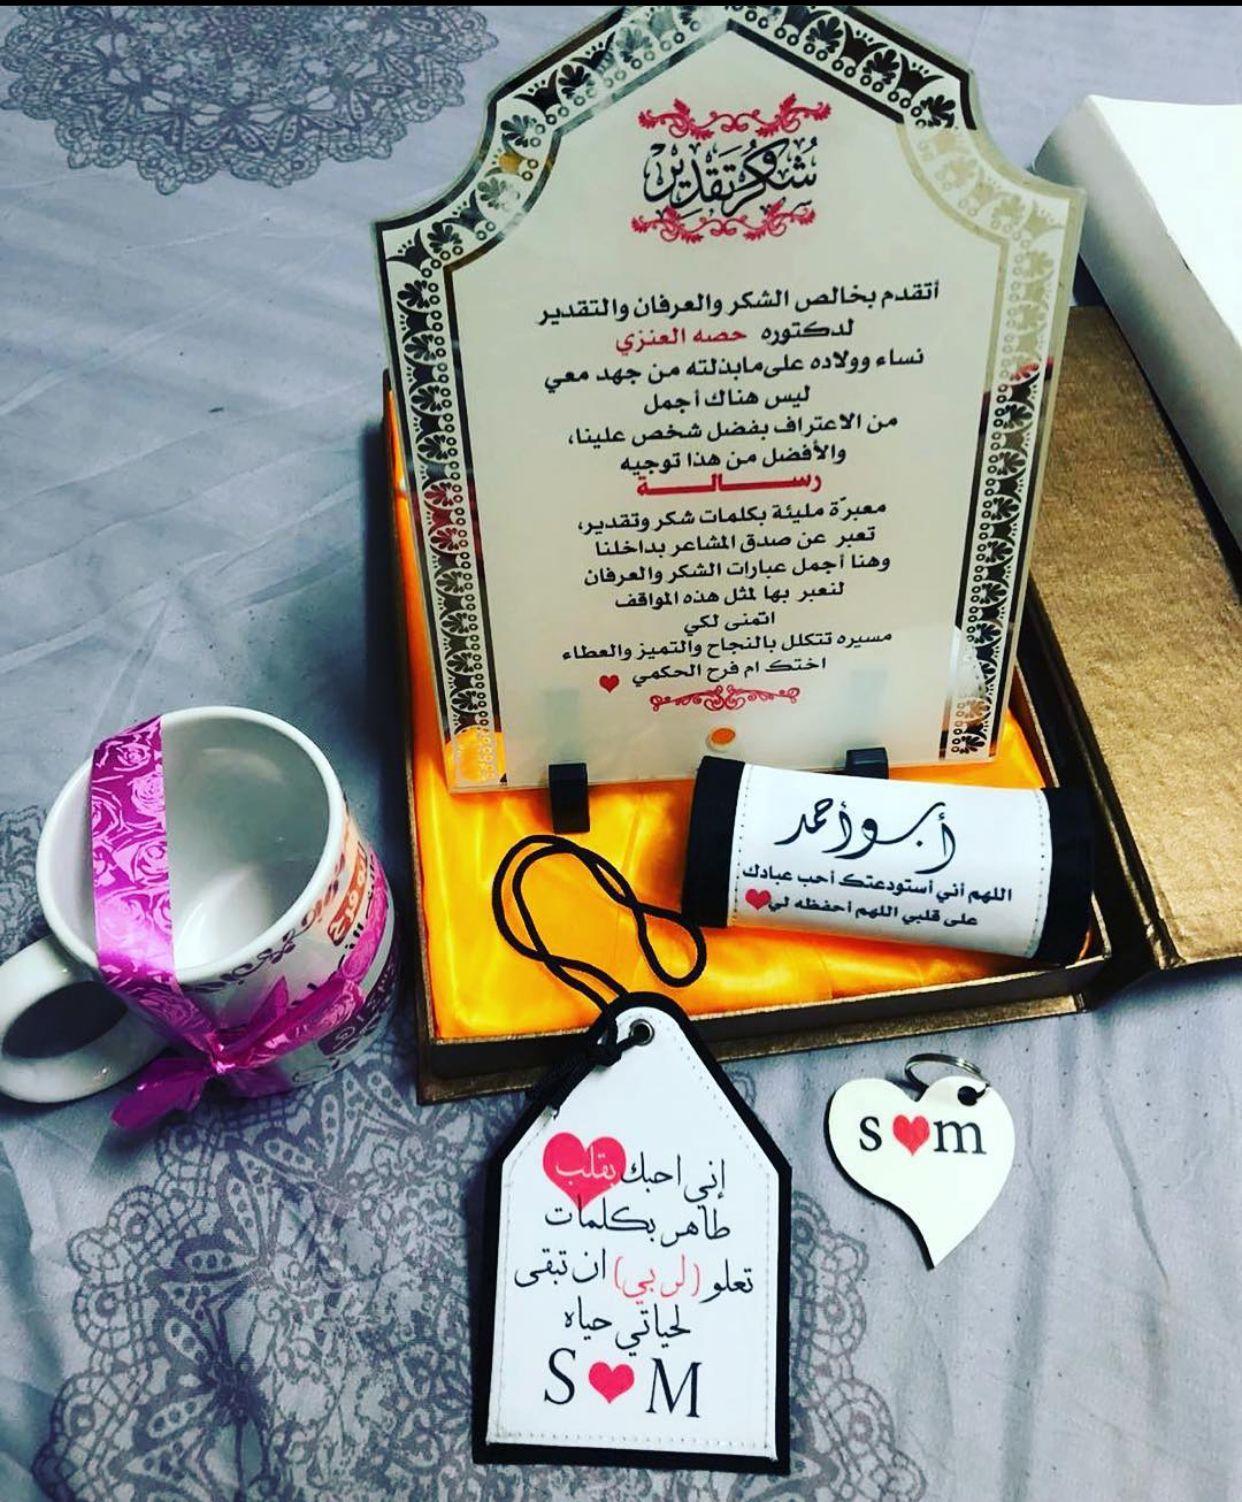 شكر وتقدير
أتقدم بخالص الشكر والعرفان والتقدير
لدكتوره حصه العنزي
نساء وولاده على مابذلته من جهد معي
ليس هناك أجمل
من الاعتراف بفضل شخص علينا،
والأفضل من هذا توجيه
رســـالـــة
معبرّة مليئة بكلمات شكر وتقدير،
تعبر عن صدق المشاعر بداخلنا
وهنا أجمل عبارات الشكر والعرفان
لنعبر بها لمثل هذه المواقف
اتمنى لكي
مسيره تتكلل بالنجاح والتميز والعطاء
اختك ام فرح الحكمي
أبو أحمد
اللهم أني أستودعتك أحب عبادك
على قلبي اللهم أحفظه لي
إني احبك بقلب
طاهر بكلمات
تعلو (لربي) ان تبقى
لحياتي حياه
S M
s m